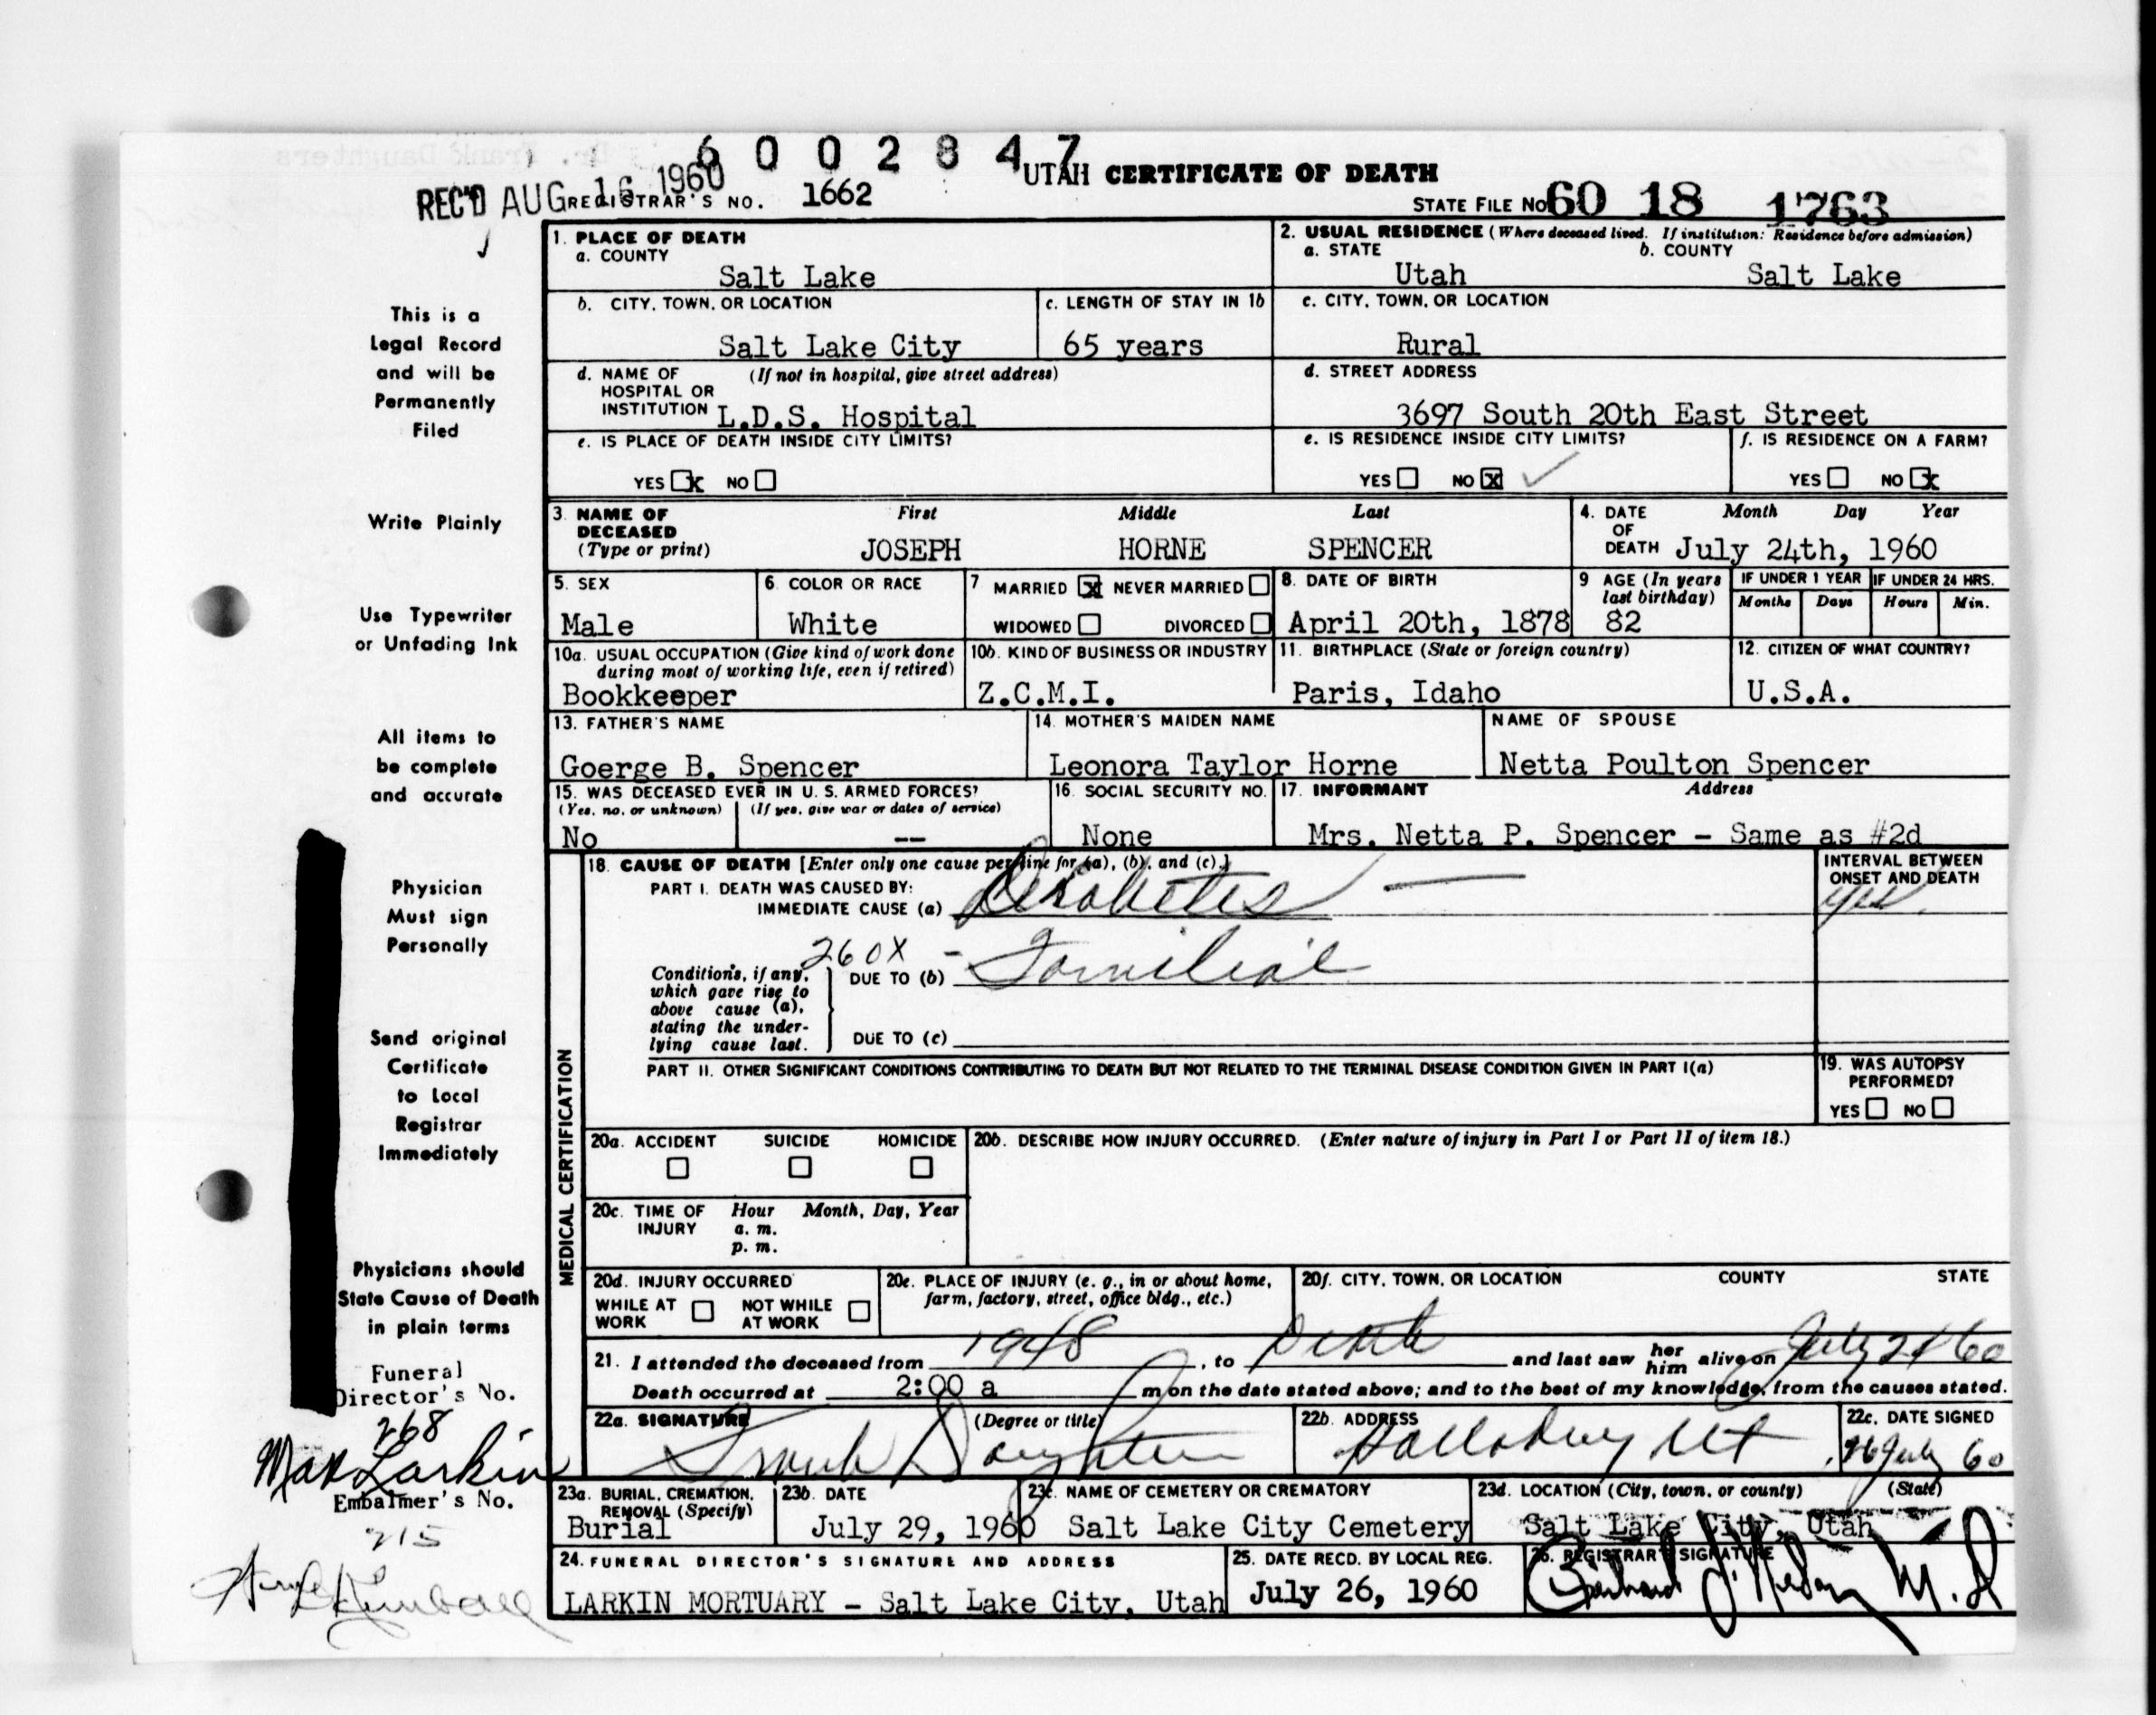 6002847
UTAH CERTIFICATE OF DEATH
REC'D AUG 16 1960
REGISTRAR'S NO. 1662
STATE FILE NO. 60 18 1763
1. PLACE OF DEATH
a. COUNTY
Salt Lake
2. USUAL RESIDENCE (Where deceased lived. If institution: Residence before admission)
a. STATE b. COUNTY
Utah Salt Lake
b. CITY, TOWN, OR LOCATION
Salt Lake City
c. LENGTH OF STAY IN 1b
65 years
c. CITY, TOWN, OR LOCATION
Rural
d. NAME OF (If not in hospital, give street address)
HOSPITAL OR
INSTITUTION L.D.S. Hospital
d. STREET ADDRESS
3697 South 20th East Street
e. IS PLACE OF DEATH INSIDE CITY LIMITS?
YES x NO
e. IS RESIDENCE INSIDE CITY LIMITS?
YES NO x
f. IS RESIDENCE ON A FARM?
YES NO x
3. NAME OF DECEASED (Type or print)
First Middle Last
JOSEPH HORNE SPENCER
4. DATE OF DEATH
Month Day Year
July 24th, 1960
5. SEX
Male
6. COLOR OR RACE
White
7 MARRIED x NEVER MARRIED
WIDOWED DIVORCED
8. DATE OF BIRTH
April 20th, 1878
9 AGE (In years last birthday)
82
IF UNDER 1 YEAR
Months Days
IF UNDER 24 HRS.
Hours Min.
10a. USUAL OCCUPATION (Give kind of work done during most of working life, even if retired)
Bookkeeper
10b. KIND OF BUSINESS OR INDUSTRY
Z.C.M.I.
11. BIRTHPLACE (State or foreign country)
Paris, Idaho
12. CITIZEN OF WHAT COUNTRY?
U.S.A.
13. FATHER'S NAME
Goerge B. Spencer
14. MOTHER'S MAIDEN NAME
Leonora Taylor Horne
NAME OF SPOUSE
Netta Poulton Spencer
15. WAS DECEASED EVER IN U. S. ARMED FORCES?
(Yes, no, or unknown) (If yes, give war or dates of service)
No --
16. SOCIAL SECURITY NO.
None
17. INFORMANT Address
Mrs. Netta P. Spencer - Same as #2d
MEDICAL CERTIFICATION
18. CAUSE OF DEATH [Enter only one cause per line for (a), (b), and (c).]
PART I. DEATH WAS CAUSED BY:
IMMEDIATE CAUSE (a) Diabetes
INTERVAL BETWEEN
ONSET AND DEATH
260X
Conditions, if any,
which gave rise to
above cause (a),
stating the under-
lying cause last.
DUE TO (b) Familial
DUE TO (c)
PART II. OTHER SIGNIFICANT CONDITIONS CONTRIBUTING TO DEATH BUT NOT RELATED TO THE TERMINAL DISEASE CONDITION GIVEN IN PART I(a)
19. WAS AUTOPSY
PERFORMED?
YES NO
20a. ACCIDENT SUICIDE HOMICIDE
20b. DESCRIBE HOW INJURY OCCURRED. (Enter nature of injury in Part I or Part II of item 18.)
20c. TIME OF INJURY
Hour Month, Day, Year
a. m.
p. m.
20d. INJURY OCCURRED
WHILE AT WORK NOT WHILE AT WORK
20e. PLACE OF INJURY (e. g., in or about home, farm, factory, street, office bldg., etc.)
20f. CITY, TOWN, OR LOCATION COUNTY STATE
21. I attended the deceased from 1948, to Death and last saw her him alive on July 24 60
Death occurred at 2:00 a m on the date stated above; and to the best of my knowledge, from the causes stated.
22a. SIGNATURE (Degree or title)
Frank Daughters
22b. ADDRESS
Holladay Ut
22c. DATE SIGNED
26 July 60
23a. BURIAL, CREMATION, REMOVAL (Specify)
Burial
23b. DATE
July 29, 1960
23c. NAME OF CEMETERY OR CREMATORY
Salt Lake City Cemetery
23d. LOCATION (City, town, or county) (State)
Salt Lake City, Utah
24. FUNERAL DIRECTOR'S SIGNATURE AND ADDRESS
LARKIN MORTUARY - Salt Lake City, Utah
25. DATE RECD. BY LOCAL REG.
July 26, 1960
26. REGISTRAR'S SIGNATURE
M.D.
This is a
Legal Record
and will be
Permanently
Filed
Write Plainly
Use Typewriter
or Unfading Ink
All items to
be complete
and accurate
Physician
Must sign
Personally
Send original
Certificate
to Local
Registrar
Immediately
Physicians should
State Cause of Death
in plain terms
Funeral
Director's No.
268
Max Larkin
Embalmer's No.
215
Kimball